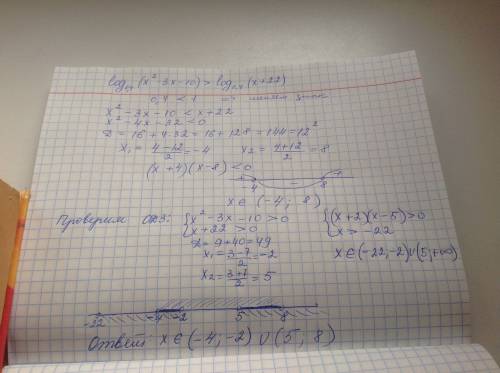 log₀,₄ (x² - 3x - 10) > log₀,₄ (x + 22)
0,4 < 1 => меняем знак
x² - 3x - 10 < x + 22
x² - 4x - 32 < 0
D = 16 + 4·32 = 16 + 128 = 144 = 12²
x₁ = (4 - 12)/2 = -4 x₂ = (4 + 12)/2 = 8
(x + 4)(x - 8) < 0
+ - +
4 8
x ∈ (-4; 8)
Проверим ОДЗ: { x² - 3x - 10 > 0 { (x + 2)(x - 5) > 0
x + 22 > 0 x > -22
D = 9 + 40 = 49 x ∈ (-22, -2) ∪ (5; +∞)
x₁ = (3 - 7)/2 = -2
x₂ = (3 + 7)/2 = 5
-22 -4 -2 5 8
Ответ: x ∈ (-4; -2) ∪ (5; 8)